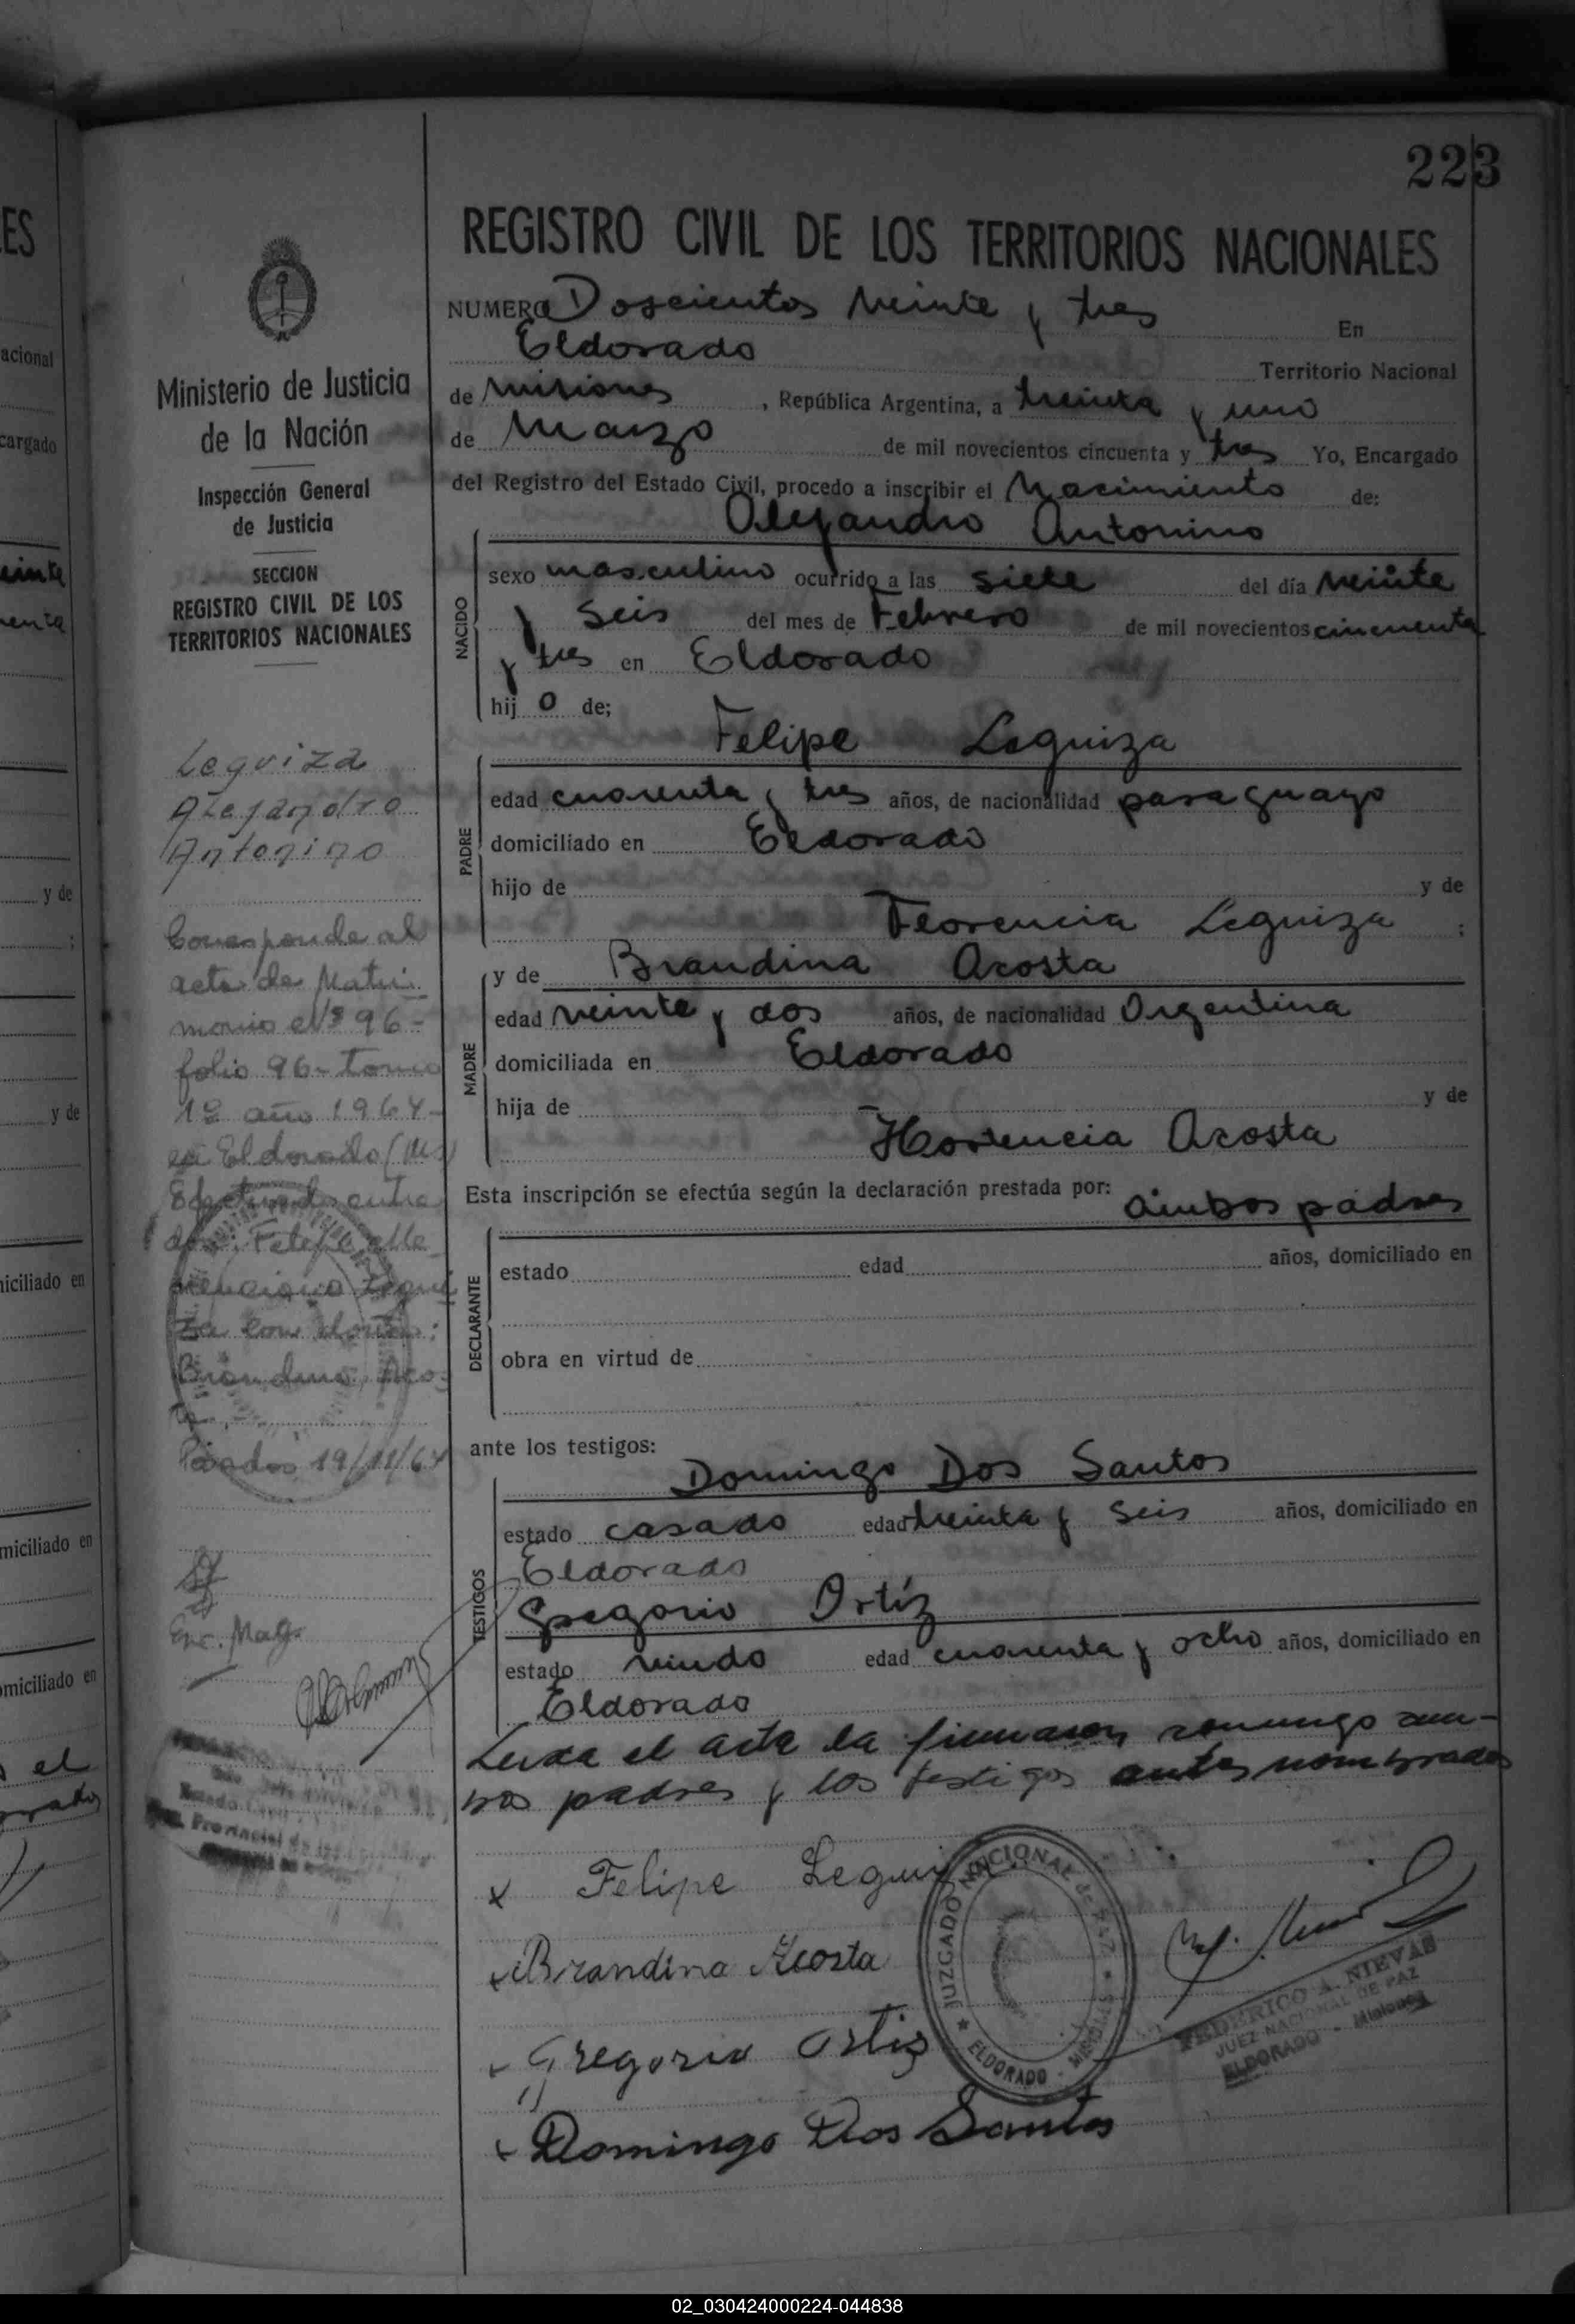 223
REGISTRO CIVIL DE LOS TERRITORIOS NACIONALES
NUMERO Doscientos veinte y tres En
Eldorado Territorio Nacional
de Misiones, República Argentina, a treinta y uno
de Marzo de mil novecientos cincuenta y tres Yo, Encargado
del Registro del Estado Civil, procedo a inscribir el Nacimiento de:
Alejandro Antonino
NACIDO
sexo masculino ocurrido a las siete del día veinte
y seis del mes de Febrero de mil novecientos cincuenta
y tres en Eldorado
hijo de;
Felipe Leguiza
PADRE
edad cuarenta y tres años, de nacionalidad paraguayo
domiciliado en Eldorado
hijo de y de
Florencia Leguiza ;
MADRE
y de Brandina Acosta
edad veinte y dos años, de nacionalidad Argentina
domiciliada en Eldorado
hija de y de
Hortencia Acosta
Esta inscripción se efectúa según la declaración prestada por: ambos padres
DECLARANTE
estado edad años, domiciliado en
obra en virtud de
ante los testigos:
Domingo Dos Santos
TESTIGOS
estado casado edad treinta y seis años, domiciliado en
Eldorado
Gregorio Ortíz
estado viudo edad cuarenta y ocho años, domiciliado en
Eldorado
Leida el acta la firmaron conmigo am-
bos padres y los testigos antes nombrados
x Felipe Legui
x Brandina Acosta
x Gregorio Ortiz
x Domingo Dos Santos
JUZGADO NACIONAL de PAZ
ELDORADO - MISIONES
FEDERICO A. NIEVAS
JUEZ NACIONAL DE PAZ
ELDORADO - Misiones
Ministerio de Justicia
de la Nación
Inspección General
de Justicia
SECCION
REGISTRO CIVIL DE LOS
TERRITORIOS NACIONALES
Leguiza
Alejandro
Antonino
Corresponde al
acta de Matri-
monio Nº 96-
folio 96- tomo
1º año 1964-
en Eldorado (Ms)
Efectuado entre
don: Felipe
Legui
za con doña:
Brandina Acos-
ta.
Posadas 19/11/64
Enc. Mag.
ES
acional
cargado
einte
enta
y de
;
y de
iciliado en
miciliado en
omiciliado en
el
02_030424000224-044838